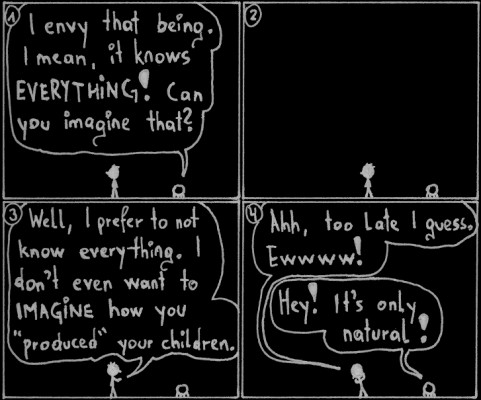 1
I envy that being.
I mean, it knows
EVERYTHING! Can
you imagine that?
2
3
Well, I prefer to not
know everything. I
don't even want to
IMAGINE how you
"produced" your children.
4
Ahh, too late I guess.
Ewwww!
Hey! It's only
natural!